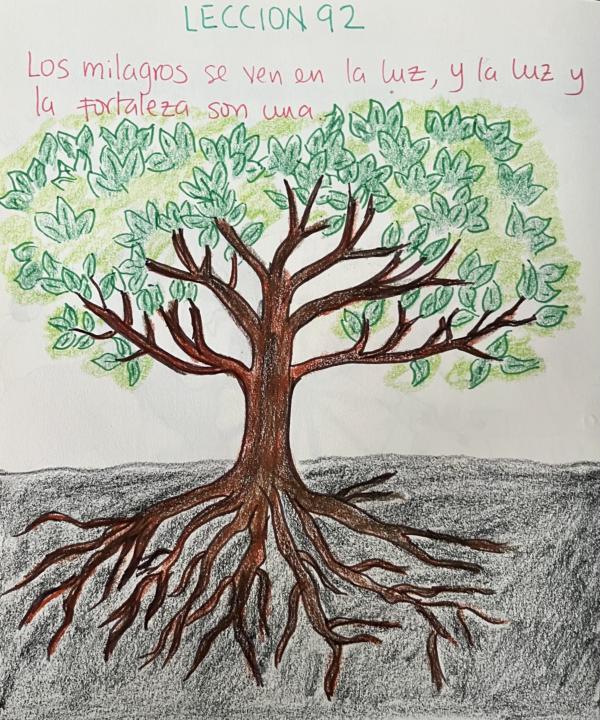 LECCION 92
Los milagros se ven en la luz, y la luz y
la fortaleza son una.